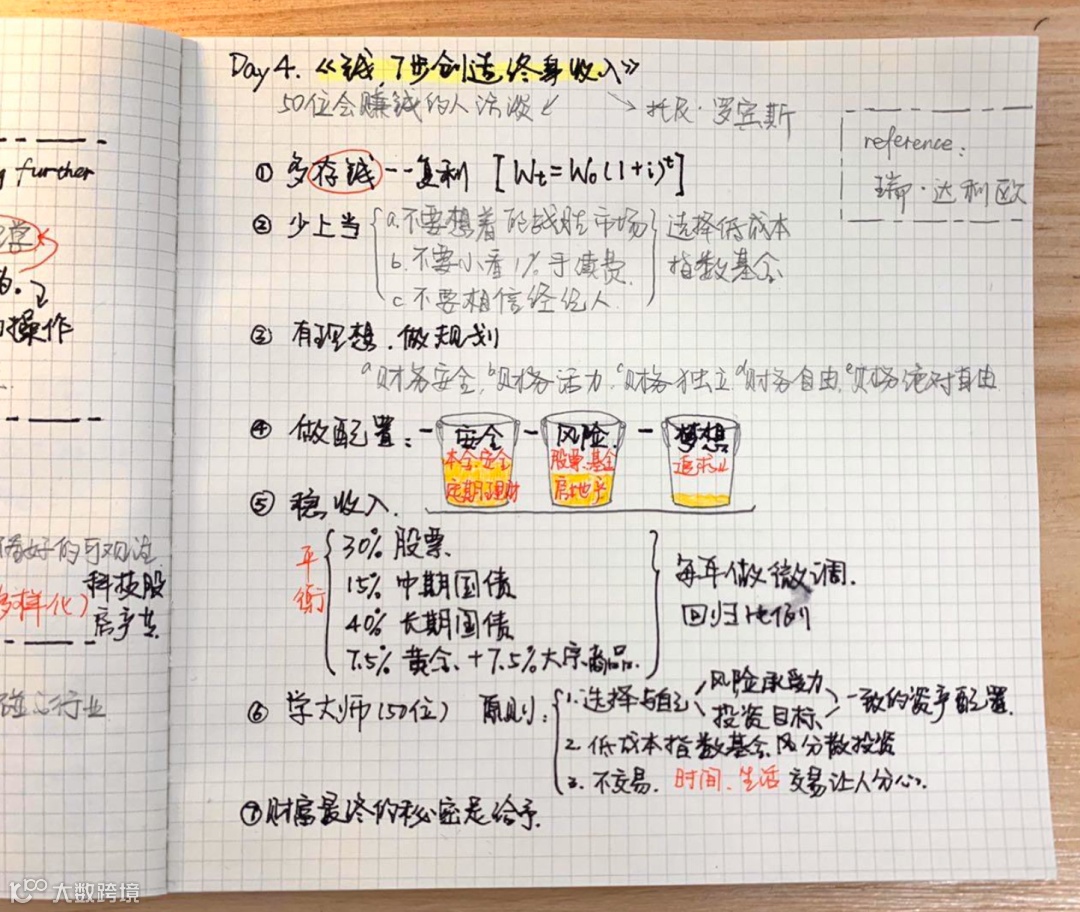 g further
学
的.
操作
看好的可观注
多样化) 科技股
房产生
行业
Day 4. 《钱, 7步创造终身收入》
50位会赚钱的人访谈 ↙ ↘ 托尼·罗宾斯
reference:
瑞·达利欧
① 多存钱 -- 复利 [Wt=W0(1+i)^t]
② 少上当 { a.不要想着能战胜市场
b.不要小看1%手续费.
c.不要相信经纪人 } 选择低成本
指数基金
③ 有理想.做规划
a财务安全,b财务活力,c财务独立,d财务自由,e财务绝对自由
④ 做配置: - 安全 - 风险 - 梦想
本金安全 股票.基金 追求
定期理财 房地产
⑤ 稳收入.
平衡 { 30% 股票
15% 中期国债
40% 长期国债
7.5% 黄金 + 7.5%大宗商品. } 每年做微调.
回归比例
⑥ 学大师(50位) 原则: { 1.选择与自己 风险承受力 投资目标 一致的资产配置.
2.低成本指数基金 分散投资
3. 不交易. 时间、生活 交易让人分心.
⑦财富最终的秘密是给予.
大数跨境